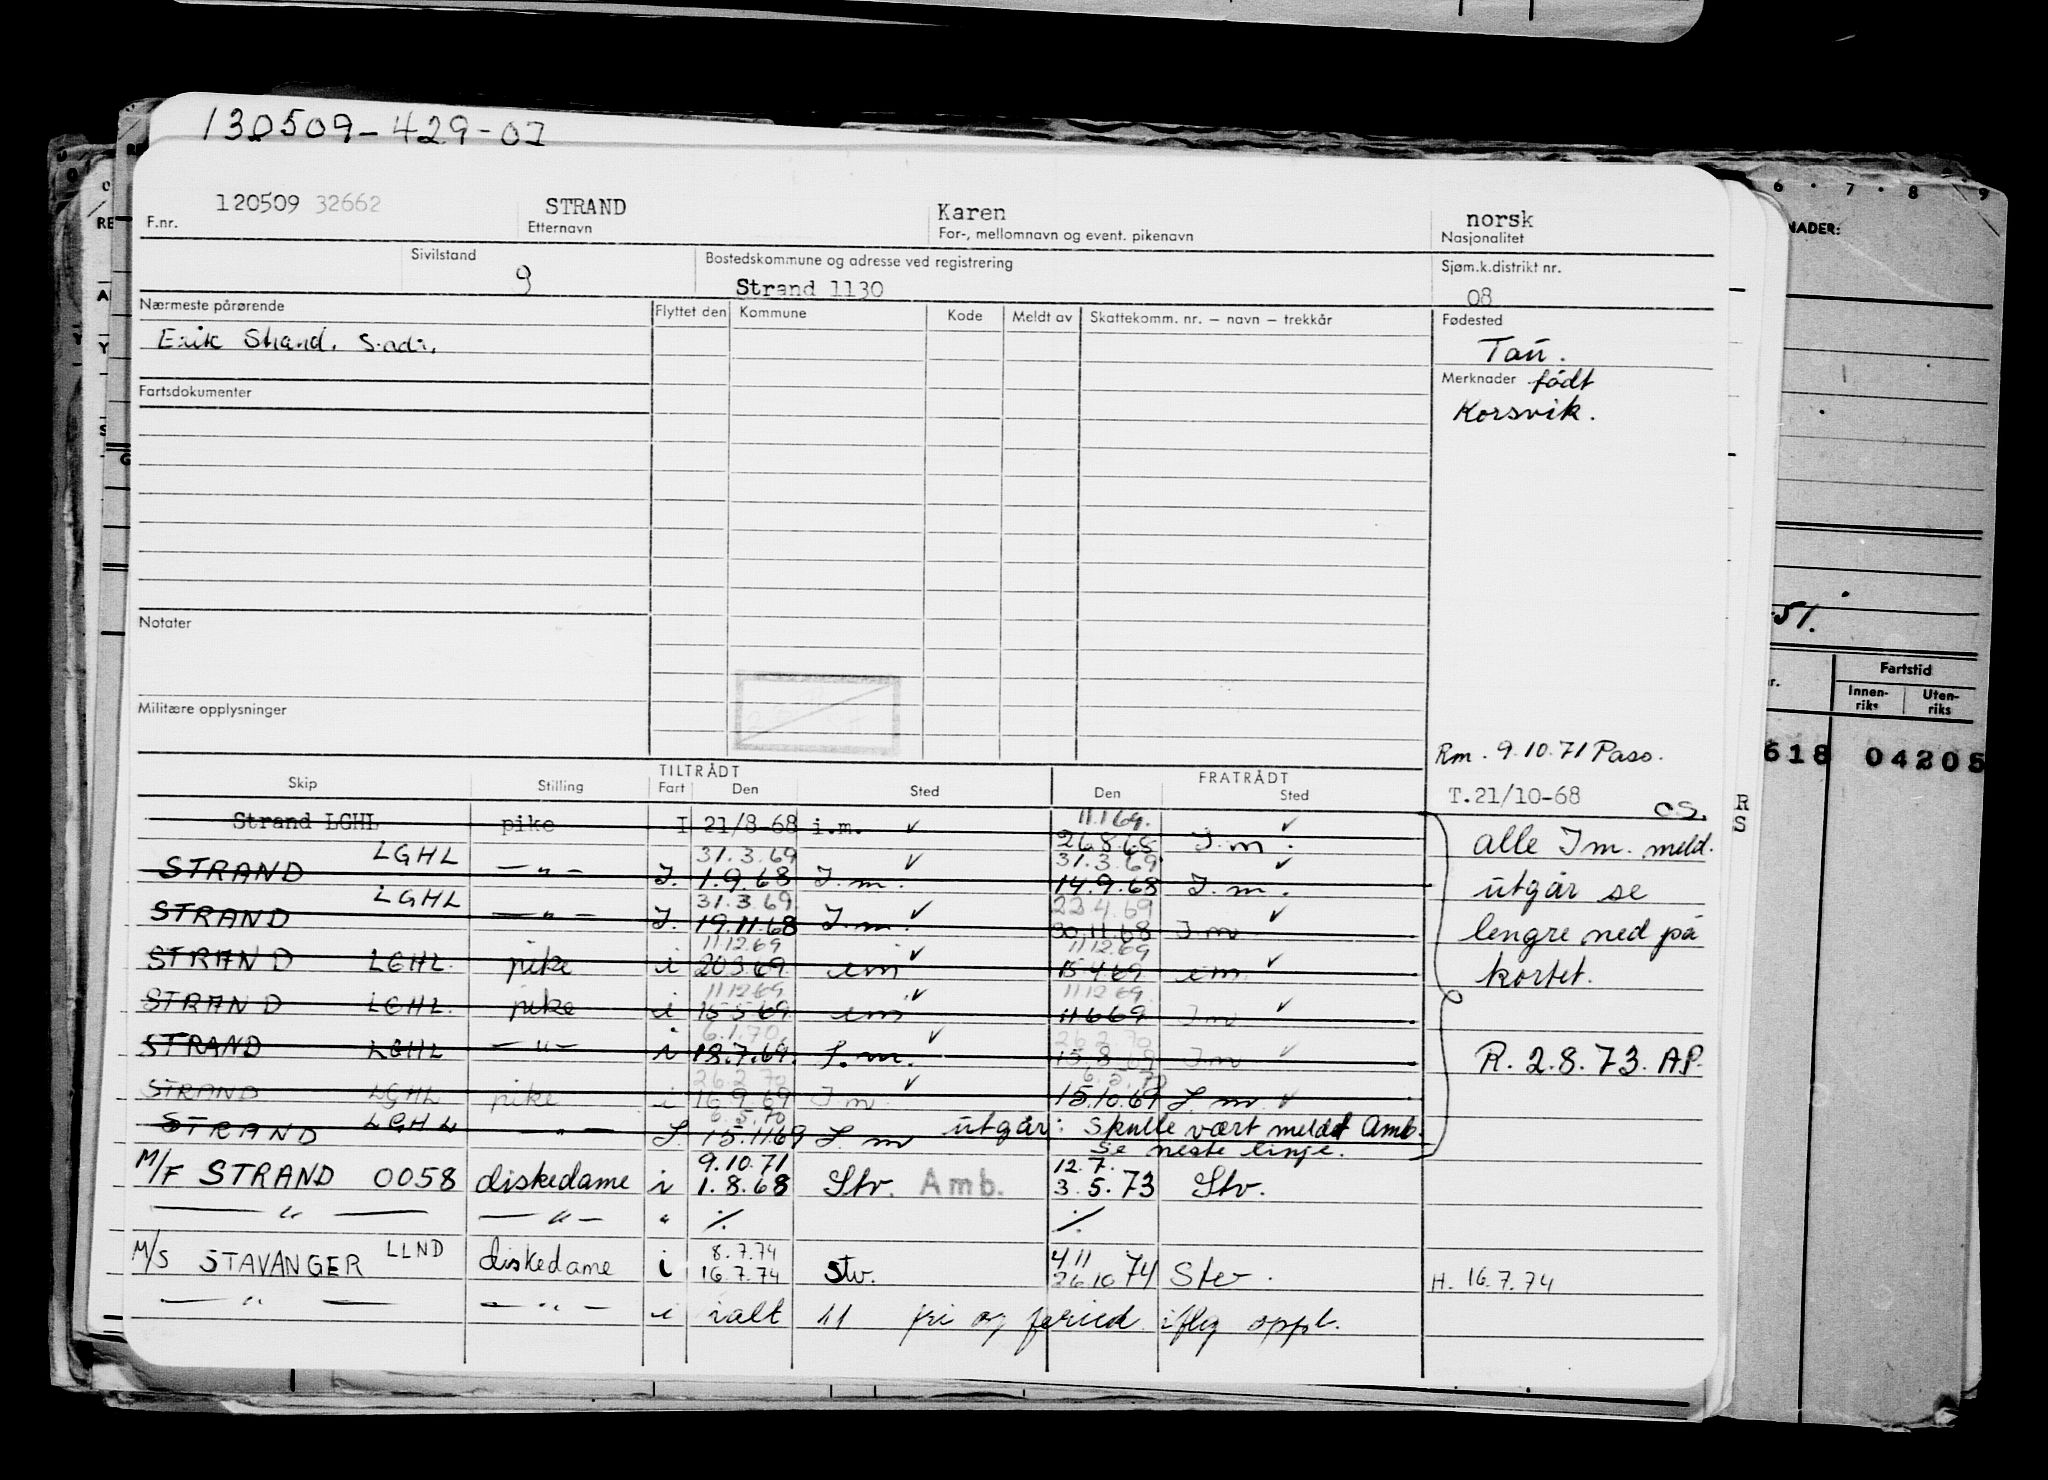 130509-429-01
120509 32662 STRAND Karen norsk
F.nr. Etternavn For-, mellomnavn og event. pikenavn Nasjonalitet
Sivilstand Bostedskommune og adresse ved registrering Sjøm.k.distrikt nr.
9 Strand 1130 08
Nærmeste pårørende Flyttet den Kommune Kode Meldt av Skattekomm. nr. — navn — trekkår Fødested
Erik Strand. Tau.
Fartsdokumenter Merknader født
Korsvik.
NADER:
6 . 7 . 8 . 9
Notater
51.
Fartstid
Innen-riks Uten-riks
Militære opplysninger
Rm. 9.10.71 Pass.
618 04205
TILTRÅDT FRATRÅDT
Skip Stilling Fart Den Sted Den Sted
T.21/10-68 CS.
Strand LGHL pike I 21/8-68 i.m. ✓ 11.1.69. 26.8.68 I.m. ✓
alle Im. meld.
STRAND LGHL — " — I. 31.3.69 1.9.68 I.m. ✓ 31.3.69 14.9.68 I.m. ✓
utgår se
STRAND LGHL — " — I. 31.3.69 19.11.68 I.m. ✓ 22.4.69 30.11.68 I.m ✓
lengre ned på
STRAND LGHL. pike i 11.12.69 20.3.69 im ✓ 11.12.69 15.4.69 im. ✓
kortet.
STRAND LGHL. pike i 11.12.69 15.5.69 im ✓ 11.12.69. 11.6.69 Im ✓
STRAND LGHL — " — i 6.1.70 18.7.69. I.m. ✓ 26.2.70 15.8.69 Im ✓
R. 2.8.73. AP.
STRAND LGHL pike i 26.2.70 16.9.69 Im ✓ 6.5.70 15.10.69 I.m ✓
STRAND LGHL — " — I. 6.5.70 15.11.69 I.m utgår: Skulle vært meldt Amb.
Se neste linje.
M/F STRAND 0058 diskedame i 9.10.71 1.8.68 Stv. Amb. 12.7. 3.5.73 Stv.
— " — — " — " ./. ./.
M/S STAVANGER LLND diskedame i 8.7.74 16.7.74 Stv. 4.11 26.10 74 Stv. H. 16.7.74
— " — — " — i ialt 11 fri og feried iflg oppl.
R
S